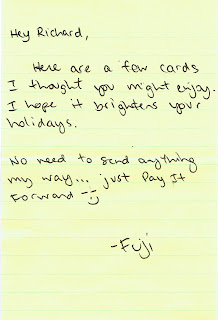 Hey Richard,
Here are a few cards
I thought you might enjoy.
I hope it brightens your
holidays.
No need to send anything
my way... just Pay It
Forward :)
-Fuji